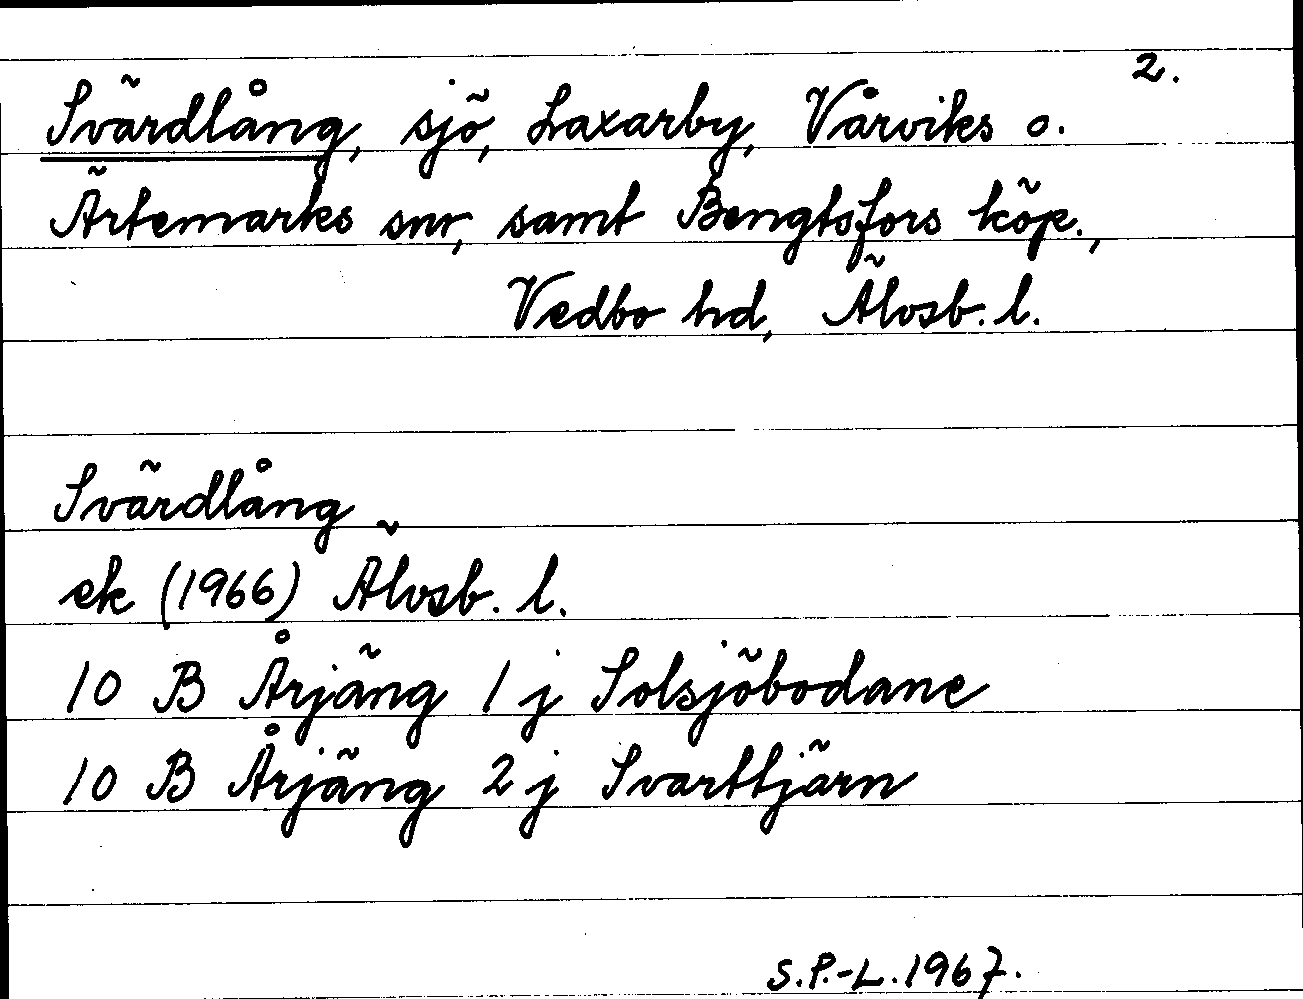 2.
Svärdlång, sjö, Laxarby, Vårviks o.
Ärtemarks snr, samt Bengtsfors köp.,
Vedbo hd, Älvsb. l.
Svärdlång
ek (1966) Älvsb. l.
10 B Årjäng 1 j Solsjöbodane
10 B Årjäng 2 j Svarttjärn
S.P.-L. 1967.